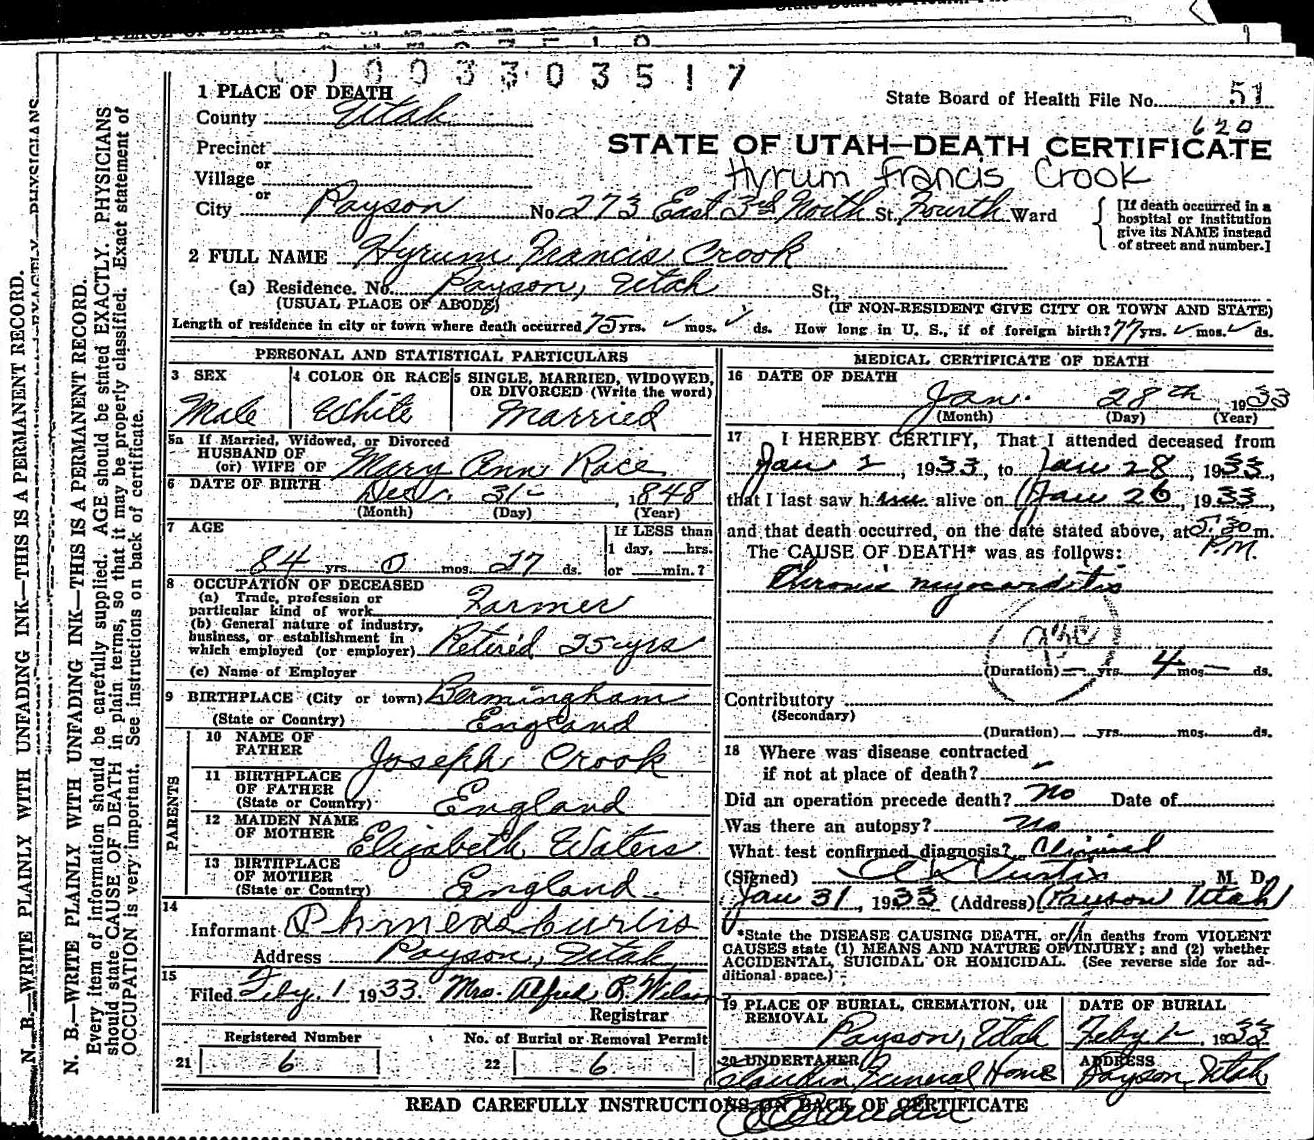 003303517
State Board of Health File No. 51
620
1 PLACE OF DEATH
County Utah
Precinct
or
Village
or
City Payson No. 273 East 3rd North St, Fourth Ward
STATE OF UTAH—DEATH CERTIFICATE
Hyrum Francis Crook
[If death occurred in a
hospital or institution
give its NAME instead
of street and number.]
2 FULL NAME Hyrum Francis Crook
(a) Residence. No. Payson, Utah St.
(USUAL PLACE OF ABODE) (IF NON-RESIDENT GIVE CITY OR TOWN AND STATE)
Length of residence in city or town where death occurred 75 yrs. mos. ds. How long in U. S., if of foreign birth? 77 yrs. mos. ds.
PERSONAL AND STATISTICAL PARTICULARS
3 SEX
Male
4 COLOR OR RACE
White
5 SINGLE, MARRIED, WIDOWED,
OR DIVORCED (Write the word)
Married
5a If Married, Widowed, or Divorced
HUSBAND OF
(or) WIFE OF Mary Ann Race
6 DATE OF BIRTH Dec. 31- , 1848
(Month) (Day) (Year)
7 AGE
84 yrs. 0 mos. 27 ds.
If LESS than
1 day, hrs.
or min.?
8 OCCUPATION OF DECEASED
(a) Trade, profession or
particular kind of work Farmer
(b) General nature of industry,
business, or establishment in
which employed (or employer) Retired 25 yrs
(c) Name of Employer
9 BIRTHPLACE (City or town) Bermingham
(State or Country) England
PARENTS
10 NAME OF
FATHER Joseph Crook
11 BIRTHPLACE
OF FATHER
(State or Country) England
12 MAIDEN NAME
OF MOTHER Elizabeth Waters
13 BIRTHPLACE
OF MOTHER
(State or Country) England
14
Informant Phineas Curtis
Address Payson, Utah
15
Filed Feby. 1 1933. Mrs. Alfred R. Wilson
Registrar
Registered Number
21 6
No. of Burial or Removal Permit
22 6
MEDICAL CERTIFICATE OF DEATH
16 DATE OF DEATH
Jan. 28th 1933
(Month) (Day) (Year)
17 I HEREBY CERTIFY, That I attended deceased from
Jan 2, 1933, to Jan 28, 1933,
that I last saw him alive on Jan 26, 1933,
and that death occurred, on the date stated above, at 5:30 m.
P.M.
The CAUSE OF DEATH* was as follows:
Chronic myocarditis
(Duration) — yrs. 4 mos — ds.
Contributory
(Secondary)
(Duration) yrs. mos. ds.
18 Where was disease contracted
if not at place of death?
Did an operation precede death? No Date of
Was there an autopsy? No
What test confirmed diagnosis? Clinical
(Signed) M. D.
Jan 31, 1933 (Address) Payson Utah
*State the DISEASE CAUSING DEATH, or in deaths from VIOLENT
CAUSES state (1) MEANS AND NATURE OF INJURY; and (2) whether
ACCIDENTAL, SUICIDAL OR HOMICIDAL. (See reverse side for ad-
ditional space.)
19 PLACE OF BURIAL, CREMATION, OR
REMOVAL
Payson, Utah
DATE OF BURIAL
Feby 1- 1933
20 UNDERTAKER
Funeral Home
ADDRESS
Payson, Utah
READ CAREFULLY INSTRUCTIONS ON BACK OF CERTIFICATE
N. B.—WRITE PLAINLY WITH UNFADING INK—THIS IS A PERMANENT RECORD.
N. B.—WRITE PLAINLY WITH UNFADING INK—THIS IS A PERMANENT RECORD.
Every item of information should be carefully supplied. AGE should be stated EXACTLY. PHYSICIANS
should state CAUSE OF DEATH in plain terms, so that it may be properly classified. Exact statement of
OCCUPATION is very important. See instructions on back of certificate.